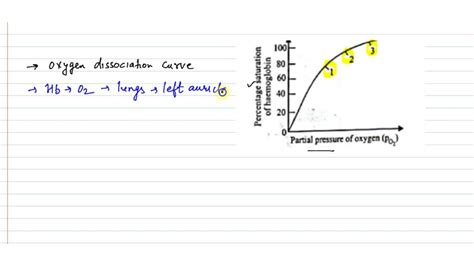 → Oxygen dissociation curve
→ Hb → O2 → lungs → left auricl
Percentage saturation
of haemoglobin
100
80
60
40
20
0
1
2
3
Partial pressure of oxygen (pO2)